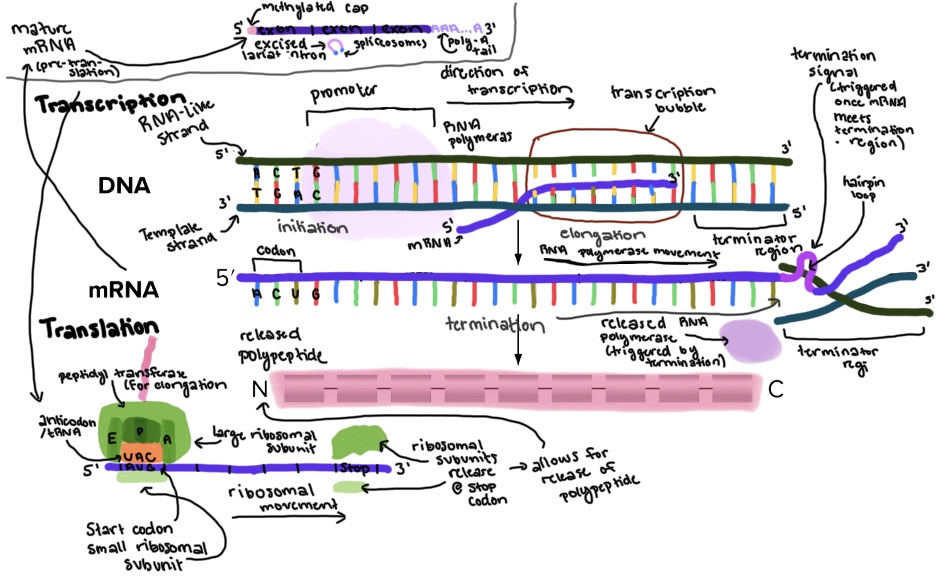 mature
mRNA
(pre-tran-
slation)
methylated cap
5'
exon
exon
exon
AAA...A
3'
excised
lariat intron
spliceosomes
poly-A
tail
Transcription
RNA-like
strand
promoter
direction of
transcription
RNA
polymeras
transcription
bubble
termination
signal
(triggered
once mRNA
meets
termination
- region)
5'
3'
A C T G
DNA
T G A C
3'
3'
5'
Template
strand
initiation
5'
mRNA
elongation
terminator
region
hairpin
loop
3'
codon
RNA polymerase movement
5'
3'
mRNA
A C U G
3'
Translation
termination
released RNA
polymerase
(triggered by
termination)
terminator
regi
released
polypeptide
peptidyl transferase
(for elongation
N
C
anticodon
/tRNA
E
P
A
large ribosomal
subunit
UAC
5'
AUG
Stop
3'
ribosomal
subunits
release
@ stop
codon
allows for
release of
polypeptide
ribosomal
movement
Start codon
small ribosomal
subunit